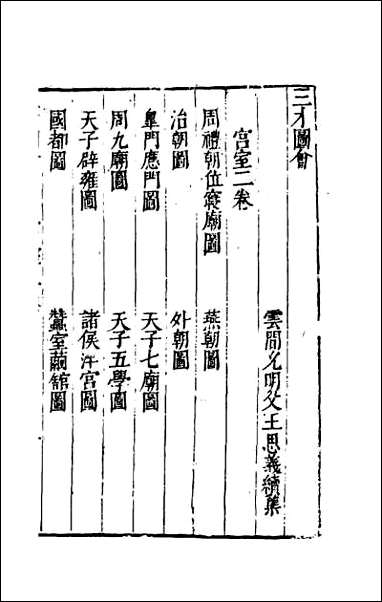 三才圖會
雲間允明父王思義續集
宮室二卷
周禮朝位寢廟圖 燕朝圖
治朝圖 外朝圖
皐門應門圖 天子七廟圖
周九廟圖 天子五學圖
天子辟雍圖 諸侯泮宮圖
國都圖 蠶室繭舘圖